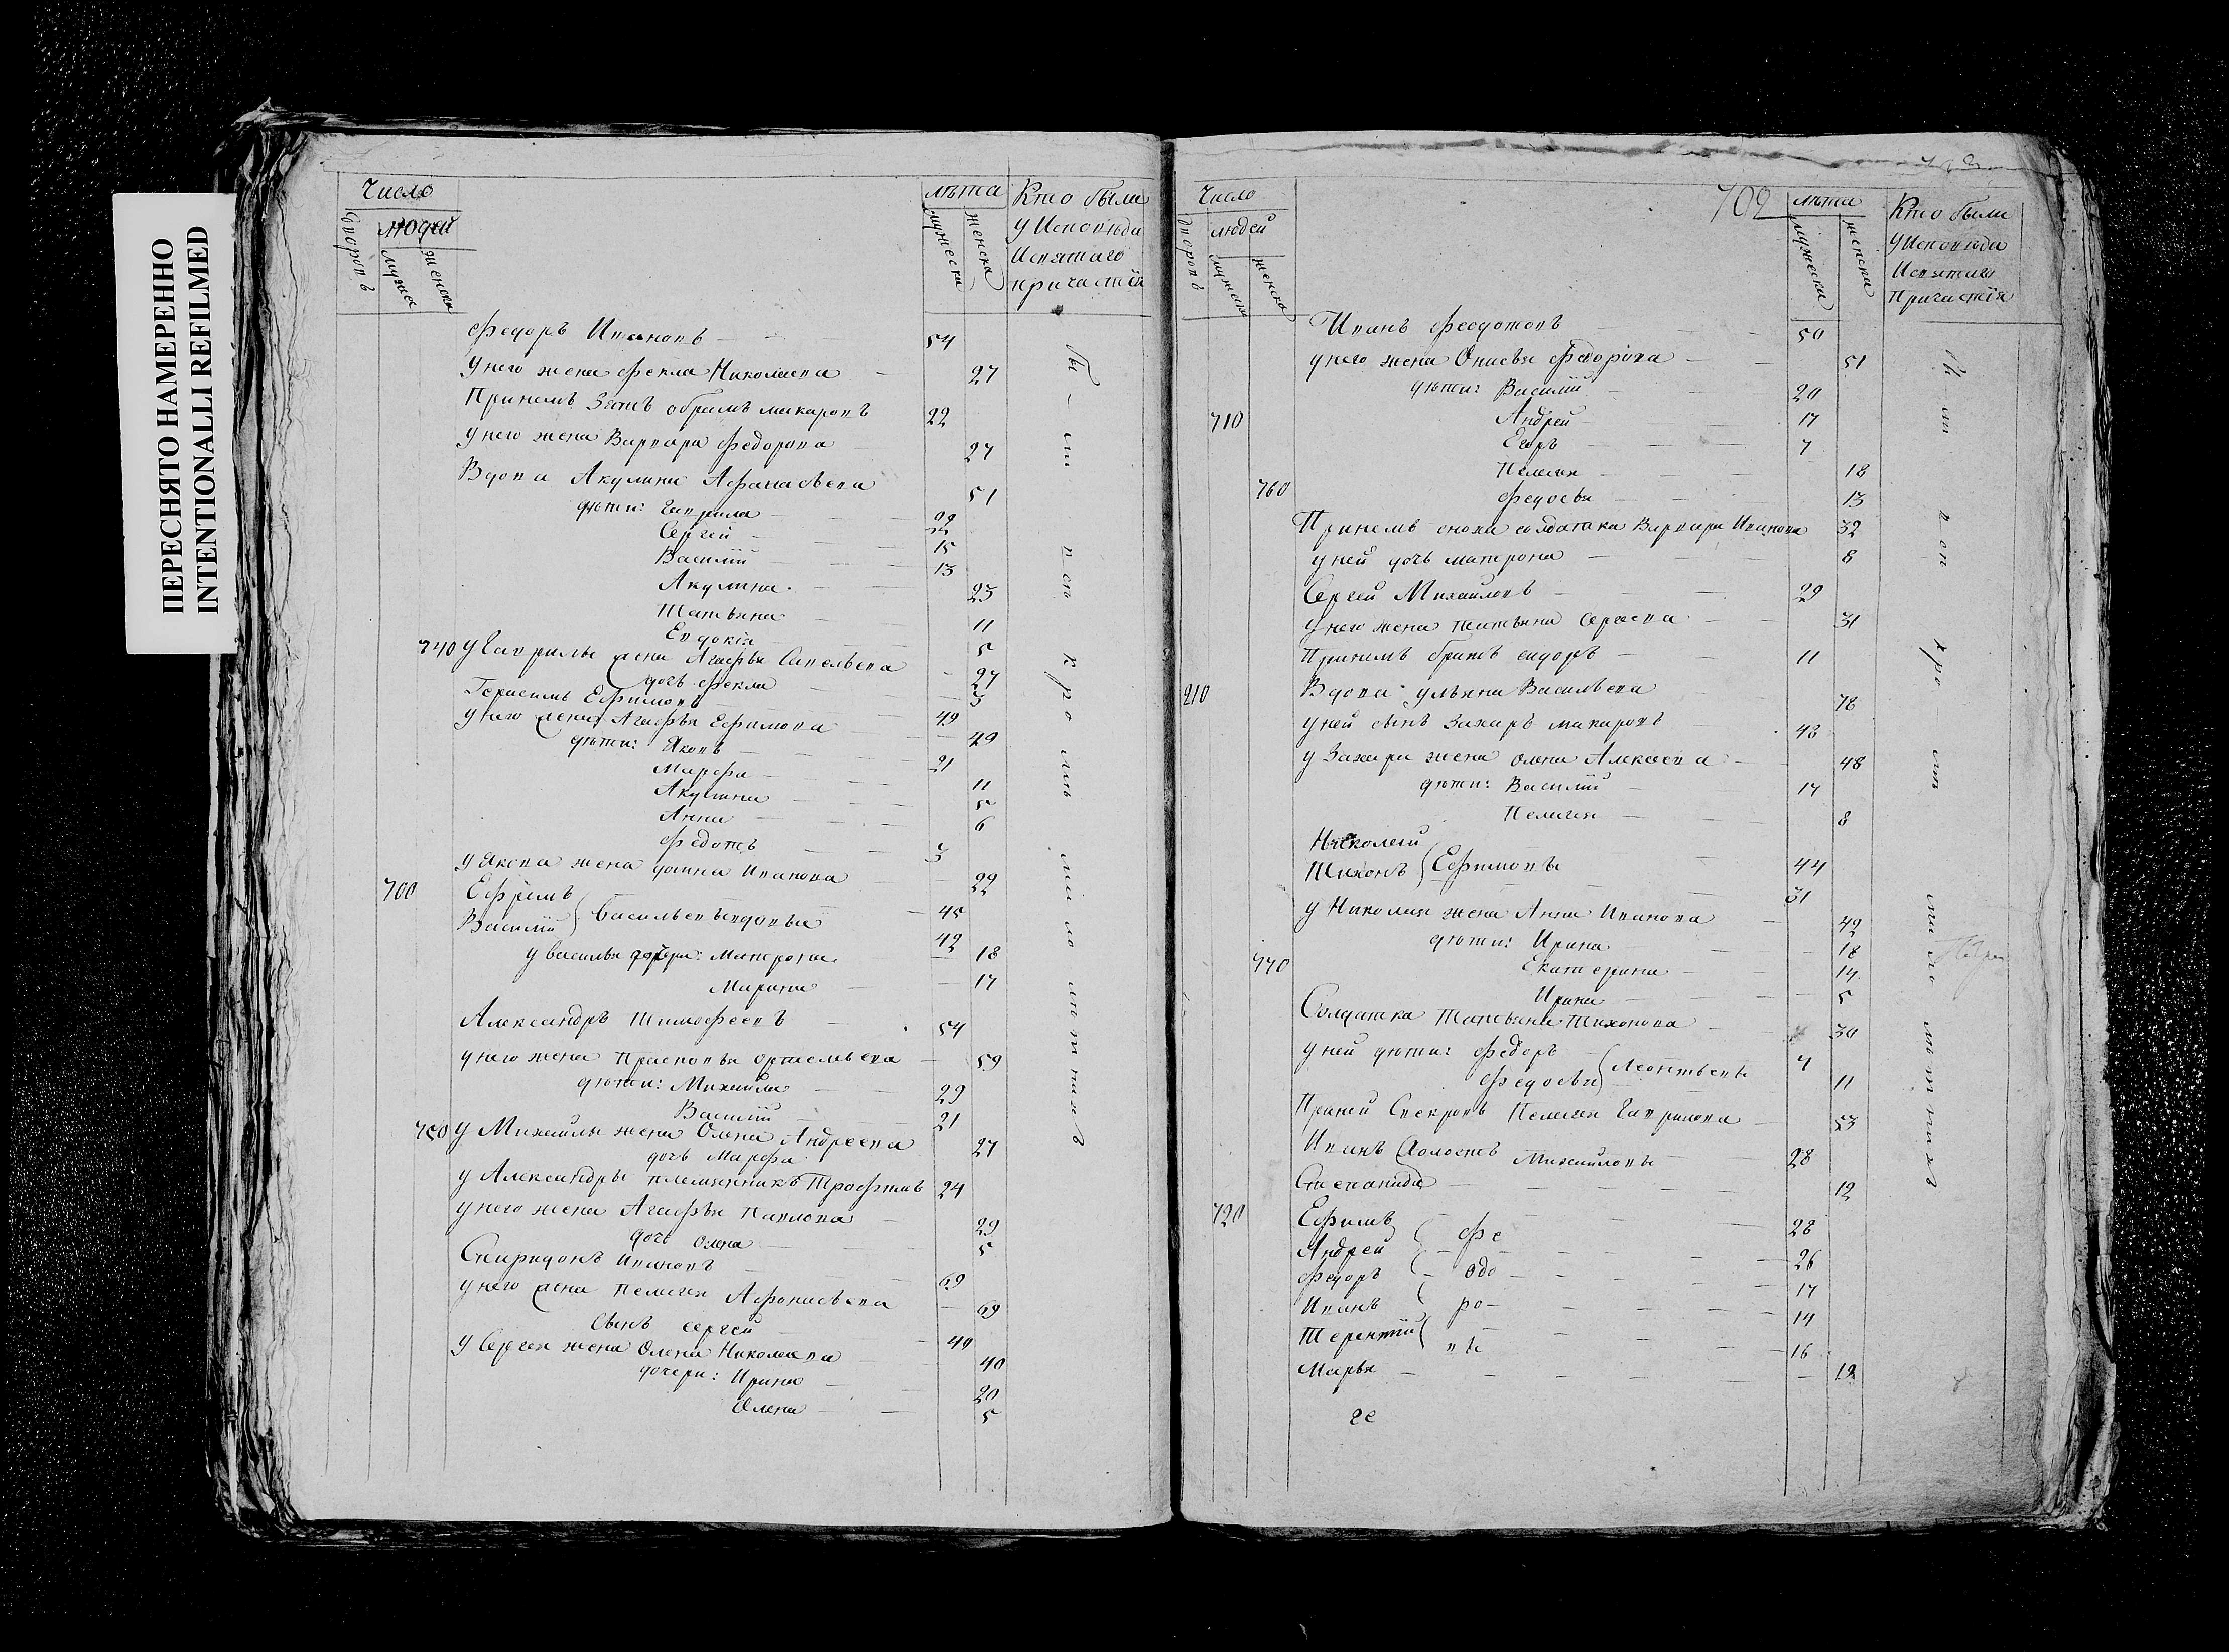 ПЕРЕСНЯТО НАМЕРЕННО
INTENTIONALLI REFILMED
Число
людей
дворовъ
мужеска
женска
лѣта
мужеска
женска
Кто были
у Исповѣди
И святаго
причастія
Федоръ Ивановъ 54
У него жена Фекла Николаева 27
При немъ Зять Абрамъ Макаровъ 22
У него жена Варвара Федорова 27
Вдова Акулина Афанасьева 51
дѣти: Гаврила 22
Сергей 15
Василій 13
Акулина 23
Татьяна 11
Евдокія 5
740 у Гаврилы жена Агафья Савельева 27
дочь Фекла 3
Герасимъ Ефимовъ 49
у него жена Агафья Ефимова 49
дѣти: Яковъ 21
Марфа 11
Акулина 5
Анна 6
Федотъ 3
у Якова жена домна Иванова 22
700 Ефремъ 45
Василій Васильевы вдовы 42
у василья дочери: Матрона 18
Марина 17
Александръ Тимофеевъ 54
у него жена Прасковья Артемьева 59
дѣти: Михайла 29
Василій 21
750 у Михайлы жена Олена Андреева 27
дочь Марфа
у Александры племянникъ Трофимъ 24
у него жена Агафья Павлова 29
дочь Олена 5
Спиридонъ Ивановъ 69
у него жена Пелагея Афонасьева 69
Сынъ Сергей 40
у Сергея жена Олена Николаева 40
дочери: Ирина 20
Олена 5
вы ш пск кро мѣ ма ло лѣтнихъ
702
Число
людей
дворовъ
мужеска
женска
лѣта
мужеска
женска
Кто были
У Исповѣди
И святаго
Причастія
Иванъ Феодотовъ 50
у него жена Онисья Федорова 51
дѣти: Василій 20
710 Андрей 17
Егоръ 7
Пелагея 18
760 Федосья 13
При немъ сноха солдатка Варвара Иванова 32
у ней дочь матрона 8
Сергей Михайловъ 29
У него жена татьяна Сергеева 31
При немъ братъ сидоръ 11
210 Вдова ульяна Васильева 78
у ней сынъ Захаръ макаровъ 48
у Захара жена олена Алексеева 48
дѣти: Василій 17
Пелагея 8
Николай 44
Тихонъ Ефимовы 31
у Николая жена Анна Иванова 42
дѣти: Ирина 18
770 Екатерина 14
Ирина 5
Солдатка Татьяна Тихонова 30
у ней дѣти: Федоръ 7
Федосья Леонтьевы 11
При ней Свекровь Пелагея Гаврилова 53
Иванъ Холостъ Михайловы 28
Степанида 12
720 Ефимъ 28
Андрей фе 26
Федоръ одо 17
Иванъ ро 14
Терентій вы 16
Марья 12
ге
кро мѣ ма ло лѣтнихъ